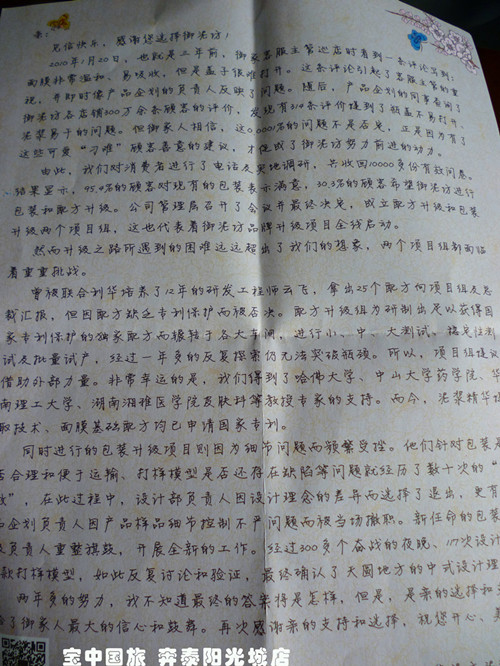 亲：
见信快乐，感谢您选择御泥坊！
2010年1月20日，也就是三年前，御泥坊客服主管巡店时看到一条评论写到：
面膜非常温和、易吸收，但是盖子很难打开。这条评论引起了客服主管的重
视，并即时像产品企划的负责人反映了问题。随后，产品企划的同事查阅了
御泥坊各店铺300万余条顾客的评价，发现有 条评价提到了瓶盖不易打开、
泥浆易干的问题。但御家人相信，这 的问题不是否忽，正是因为有了
这些可爱“刁难”顾客善意的建议，才促成了御泥坊努力前进的动力。
由此，我们对消费者进行了电话及实地调研，共收回10000多份有效问卷。
结果显示，95.0%的顾客对现有的包装表示满意，30.3%的顾客希望御泥坊进行
包装和配方升级。公司管理局召开了会议并最终决定，成立配方升级和包装
升级两个项目组，这也代表着御泥坊品牌升级项目全线启动。
然而升级之路所遇到的困难远远超出了我们的想象，两个项目组都面临
着重重挑战。
曾被联合利华培养了12年的研发工程师云飞，拿出25个配方向项目组及总
裁汇报，但因配方缺乏专利保护而被否决。配方升级组为研制出足以获得国
家专利保护的独家配方而辗转于各大车间，进行小、中、大测试。稳定性测
试及批量试产，经过一年多的反复探索仍无法突破瓶颈。所以，项目组提议
借助外部力量。非常幸运的是，我们得到了哈佛大学、中山大学药学院、华
南理工大学、湖南湘雅医学院皮肤科等教授专家的支持。而今，泥浆精华提
取技术、面膜基础配方均已申请国家专利。
同时进行的包装升级项目则因为细节问题而频繁受挫。他们针对包装是
否合理和便于运输、打样模型是否还存在缺陷等问题就经历了数十次的“
”，在此过程中，设计部负责人因设计理念的差异而选择了退出，更有
品企划负责人因产品样品细节控制不严问题而被当场撤职。新任命的包装
负责人重整旗鼓，开展全新的工作。经过300多个奋战的夜晚、117次设计
款打样模型，如此反复讨论和验证，最终确认了天圆地方的中式设计理
两年多的努力，我不知道最终的答案将是怎样，但是，是亲的选择和支
了御家人最大的信心和鼓舞。再次感谢亲的支持和选择，祝您开心、美
宝中国旅 奔泰阳光城店